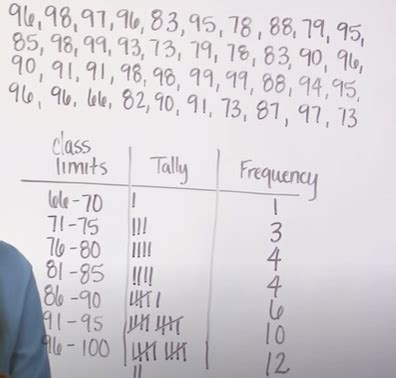 96, 98, 97, 96, 83, 95, 78, 88, 79, 95,
85, 98, 99, 93, 73, 79, 78, 83, 90, 96,
90, 91, 91, 98, 98, 99, 99, 88, 94, 95,
96, 96, 66, 82, 90, 91, 73, 87, 97, 73
class limits | Tally | Frequency
66-70 | 1
71-75 ||| 3
76-80 |||| 4
81-85 |||| 4
86-90 𝍸 | 6
91-95 𝍸 𝍸 10
96-100 𝍸 𝍸 || 12